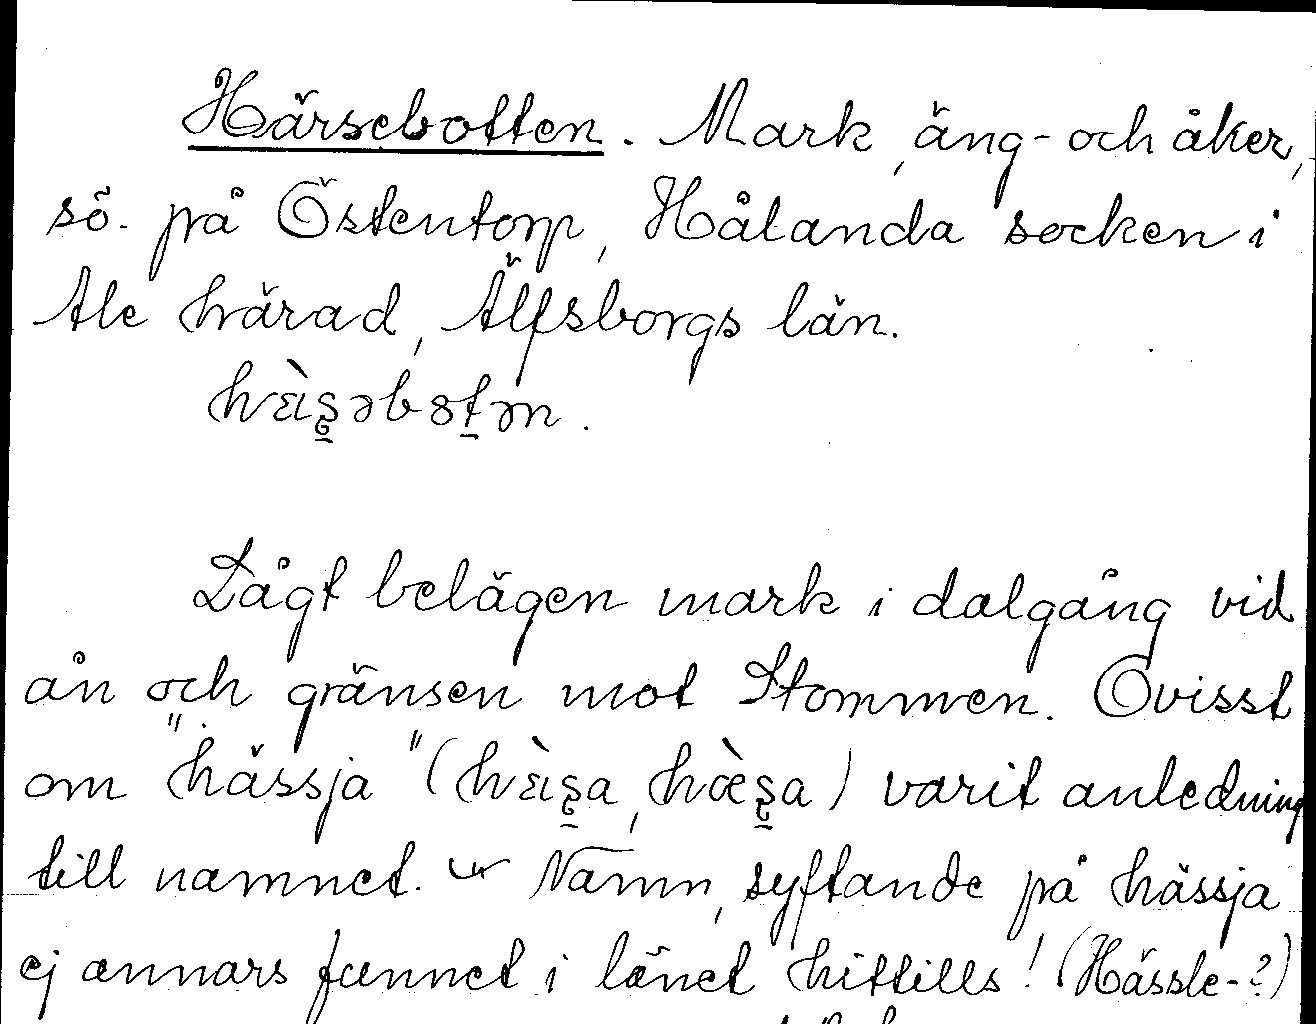 Härsebotten. Mark, äng- och åker,
sö. på Östentorp, Hålanda socken i
Ale härad, Älfsborgs län.
hὲşəbɷt̠ən.
Lågt belägen mark i dalgång vid
ån och gränsen mot Stommen. Ovisst
om "hässja" (hὲşa, hæ̀şa) varit anledning
till namnet. Namn, syftande på hässja
ej annars funnet i länet hittills! (Hässle-?)